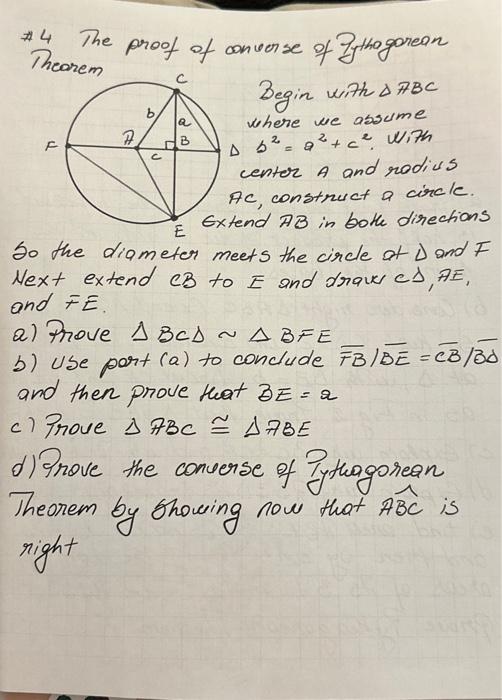 #4 The proof of converse of Pythagorean
Theorem
Begin with Δ ABC
where we assume
b² = a² + c². With
center A and radius
AC, construct a circle.
Extend AB in both directions
So the diameter meets the circle at D and F
Next extend CB to E and draw CD, AE,
and FE.
a) Prove Δ BCD ~ Δ BFE
b) Use part (a) to conclude FB/BE = CB/BD
and then prove that BE = a
c) Prove Δ ABC ≅ Δ ABE
d) Prove the converse of Pythagorean
Theorem by showing now that ABC is
right
C
b
a
F
A
B
c
D
E